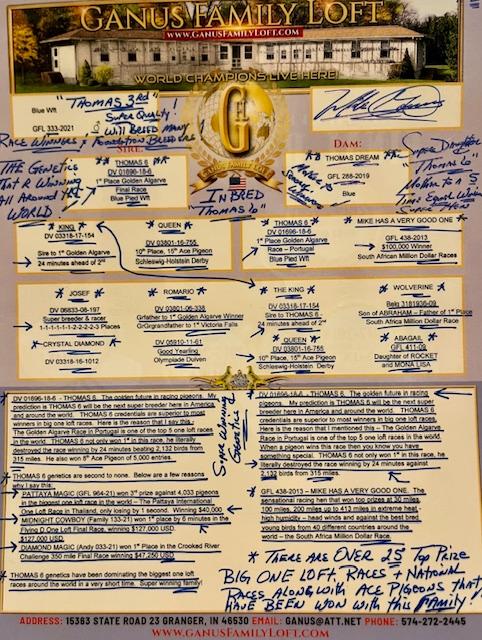 GANUS FAMILY LOFT
WWW.GANUSFAMILYLOFT.COM
WORLD CHAMPIONS LIVE HERE
Blue Wft
"THOMAS 3rd"
Super Quality!
GFL 333-2021
Will BREED MANY
RACE WINNERS & FOUNDATION BREEDERS!
SIRE:
DAM:
G
GANUS FAMILY LOFT
THE GENETICS
THAT R WINNING
All AROUND THE
WORLD
** THOMAS 6 **
DV 01696-18-6
1st Place Golden Algarve
Final Race
Blue Pied Wft
IN BRED
"Thomas 6"
** THOMAS DREAM **
GFL 288-2019
Blue
Mother is
Winners
Super Daughter
"Thomas 6"
Mother to a 5
Time
* KING *
DV 03318-17-154
Sire to 1st Golden Algarve
24 minutes ahead of 2nd
* QUEEN *
DV 03801-16-755
10th Place, 15th Ace Pigeon
Schleswig-Holstein Derby
* THOMAS 6 *
DV 01696-18-6
1st Place Golden Algarve
Race – Portugal
Blue Pied Wft
* MIKE HAS A VERY GOOD ONE *
GFL 438-2013
$100,000 Winner
South African Million Dollar Races
* JOSEF *
DV 06833-08-197
Super breeder & racer
1-1-1-1-1-1-2-2-2-2-3 Places
* CRYSTAL DIAMOND *
DV 03318-16-1012
* ROMARIO *
DV 03801-06-338
Grfather to 1st Golden Algarve Winner
GrGrgrandfather to 1st Victoria Falls
DV 05910-11-61
Good Yearling
Olympiade Duiven
* THE KING *
DV 03318-17-154
Sire to THOMAS-6
24 minutes ahead of 2nd
* QUEEN *
DV 03801-16-755
10th Place, 15th Ace Pigeon
Schleswig-Holstein Derby
* WOLVERINE *
Belg 3181936-09
Son of ABRAHAM – Father of 1st Place
South Africa Million Dollar Race
* ABAGAIL *
GFL 411-09
Daughter of ROCKET
and MONA LISA
DV 01696-18-6 - THOMAS 6. The golden future in racing
pigeons. My prediction is THOMAS 6 will be the next super
breeder here in America and around the world. THOMAS 6
credentials are superior to most winners in big one loft races.
Here is the reason that I say this -
The Golden Algarve Race in Portugal is one of the top 5 one loft races
in the world. THOMAS 6 not only won 1st in this race, he literally
destroyed the race winning by 24 minutes beating 2,132 birds from
315 miles. He also won 8th Ace Pigeon of 5,000 entries.
THOMAS 6 genetics are second to none. Below are a few reasons
why I say this:
PATTAYA MAGIC (GFL 964-21) won 3rd prize against 4,033 pigeons
in the biggest one loft race in the world – The Pattaya International
One Loft Race in Thailand, only losing by 1 second. Winning $40,000
MIDNIGHT COWBOY (Family 133-21) won 1st place by 6 minutes in the
Flying D One Loft Final Race, winning $127,000 USD.
$127,000 USD.
DIAMOND MAGIC (Andy 033-21) won 1st Place in the Crooked River
Challenge 350 mile Final Race winning $47,250 USD
THOMAS 6 genetics have been dominating the biggest one loft
races around the world in a very short time. Super winning family!
Super Winning
Genetics
DV 01696-18-6 - THOMAS 6. The golden future in racing
pigeons. My prediction is THOMAS 6 will be the next super
breeder here in America and around the world. THOMAS 6
credentials are superior to most winners in big one loft races.
Here is the reason that I mentioned this – The Golden Algarve
Race in Portugal is one of the top 5 one loft races in the world.
When a pigeon wins this race then you know you have
something special. THOMAS 6 not only won 1st in this race, he
literally destroyed the race winning by 24 minutes against
2,132 birds from 315 miles.
GFL 438-2013 – MIKE HAS A VERY GOOD ONE. The
sensational racing hen that won top prizes at 30 miles,
100 miles, 200 miles up to 413 miles in extreme heat,
high humidity – head winds and against the best bred
young birds from 40 different countries around the
world – the South African Million Dollar Race.
* THERE ARE OVER 25 Top Prize
BIG ONE LOFT RACES + NATIONAL
RACES ALONG WITH ACE PIGEONS THAT
HAVE BEEN WON WITH THIS Family!
ADDRESS: 15363 STATE ROAD 23 GRANGER, IN 46530 EMAIL: GANUS@ATT.NET PHONE: 574-272-2445
WWW.GANUSFAMILYLOFT.COM